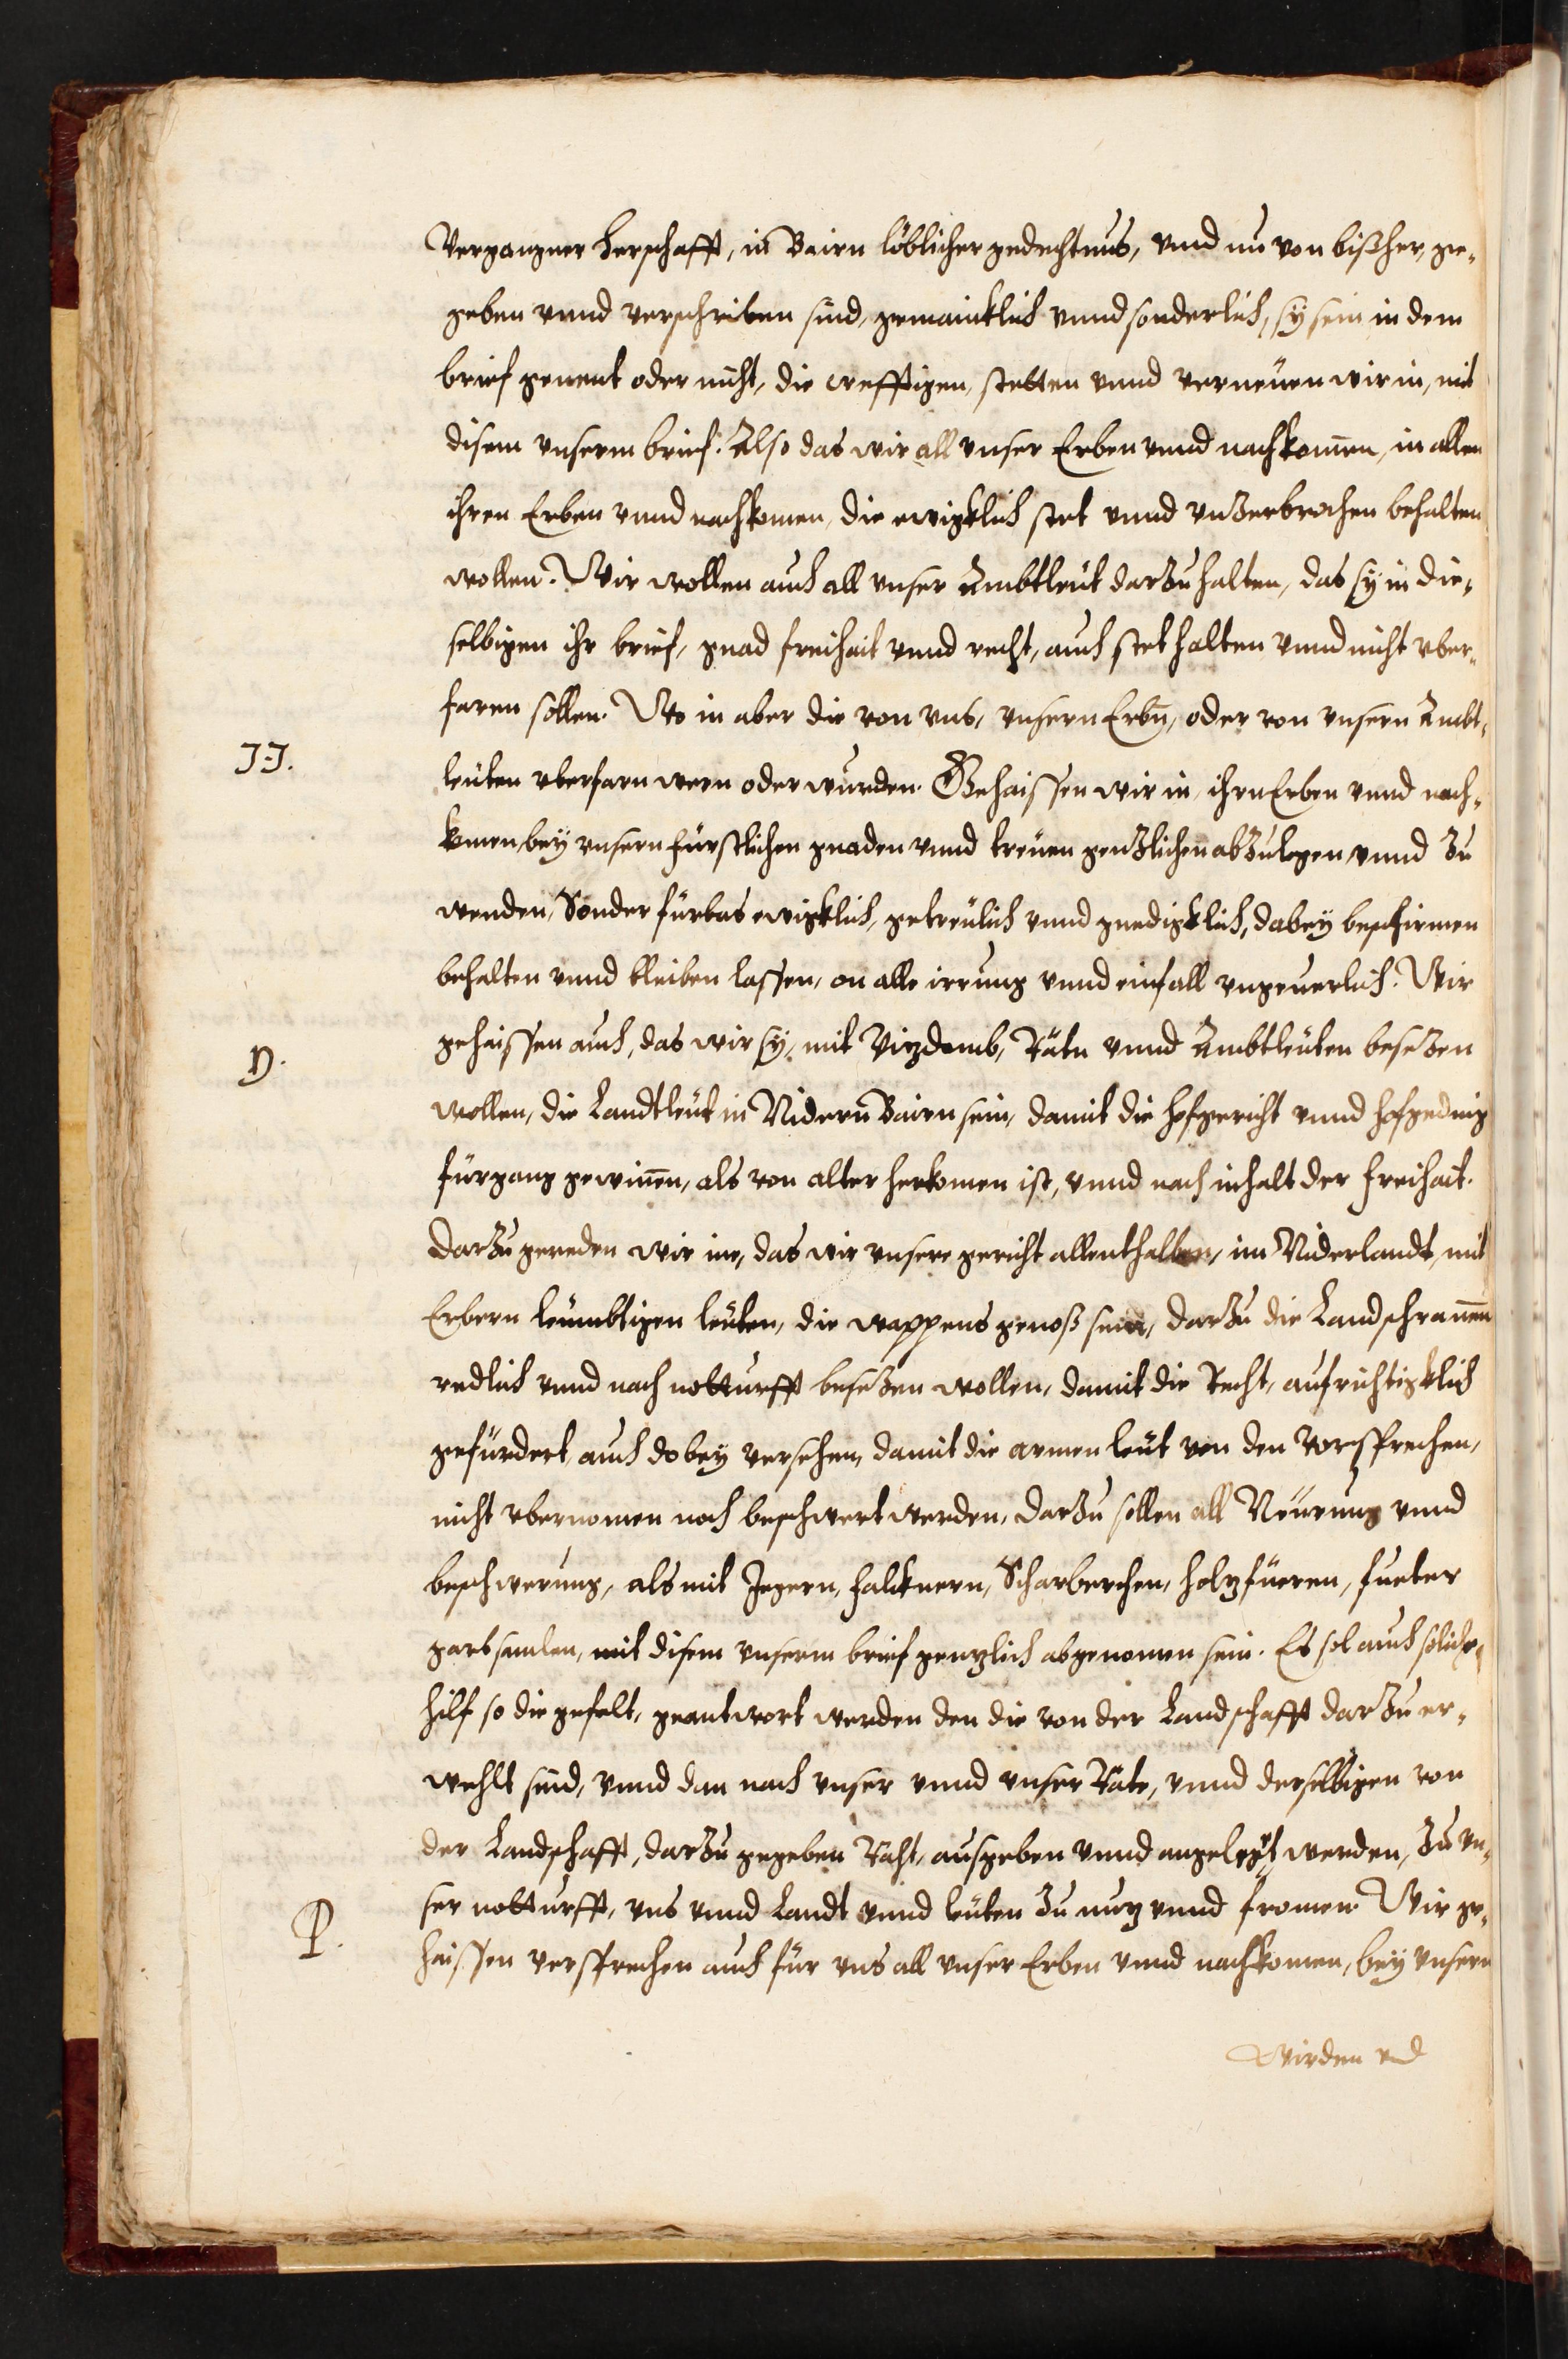 Vergangner Herschafft, in Bairn löblicher gedechtnus, vnnd nu von bißher, ge¬
geben vnnd verschriben sind, gemaincklich vnnd sonderlich, sy sein in dem
brief genent oder nicht, die crefftigen, stetten vnnd verneuen wir in, mit
disem vnserm brief. Also das wir all vnser Erben vnnd nachkomen, in allen
ihren Erben vnnd nachkomen, die ewigklich stet vnnd vnzerbrochen behalten
wollen. Wir wollen auch all vnser Ambtleut darzu halten, das sy in die¬
selbigen ihr brief, gnad freihait vnnd recht, auch stet halten vnnd nicht vber¬
faren sollen. Wo in aber die von vns, vnsern Erbn, oder von vnsern Ambt¬
II.
leuten vberfarn wern oder wurden. Gehaissen wir in, ihrn Erben vnnd nach¬
komen, bey vnsern fürstlichen gnaden vnnd treuen genzlichen abzulegen vnnd zu
wenden, Sonder fürbas ewigklich, getreulich vnnd gnedigklich, dabey beschirmen
behalten vnnd bleiben lassen, on alle irrung vnnd einfall vngeuerlich. Wir
n.
gehaissen auch, das wir sy, mit Vizdomb, Rätn vnnd Ambtleuten besezen
wollen, die Landtleut in Nidern Bairn sein, damit die hofgericht vnnd hofgeding
fürgang gewinnen, als von alter herkomen ist, vnnd nach inhalt der freihait.
Darzu gereden wir ine, das wir vnsere gericht allenthalben, im Niderlandt, mit
Erbern leumbtigen leuten, die wappens genoß sein, darzu die Landschrannen
redlich vnnd nach notturfft besezen wollen, damit die Recht, aufrichtigklich
gefürdert, auch dobey versehen, damit die armen leut von den vorsprechen,
nicht vbernomen noch beschwert werden, darzu sollen all Neuerung vnnd
beschwerung, als mit Jegern, falcknern, Scharberchen, holzfüeren, fueter
garbsamlen, mit disem vnserm brief genzlich abgenomen sein. Es sol auch söliche
hilf so die gefelt, geantwort werden den die von der Landschafft darzu er¬
wehlt sind, vnnd dan nach vnser vnnd vnser Räte, vnnd derselbigen von
der Landschafft, darzu gegeben Raht, ausgeben vnnd angelegt werden, zu vn¬
ser notturfft, vns vnnd Landt vnnd leuten zu nuz vnnd fromen. Wir ge¬
P.
haissen versprechen auch für vns all vnser Erben vnnd nachkomen, bey vnsern
Wirden vnd